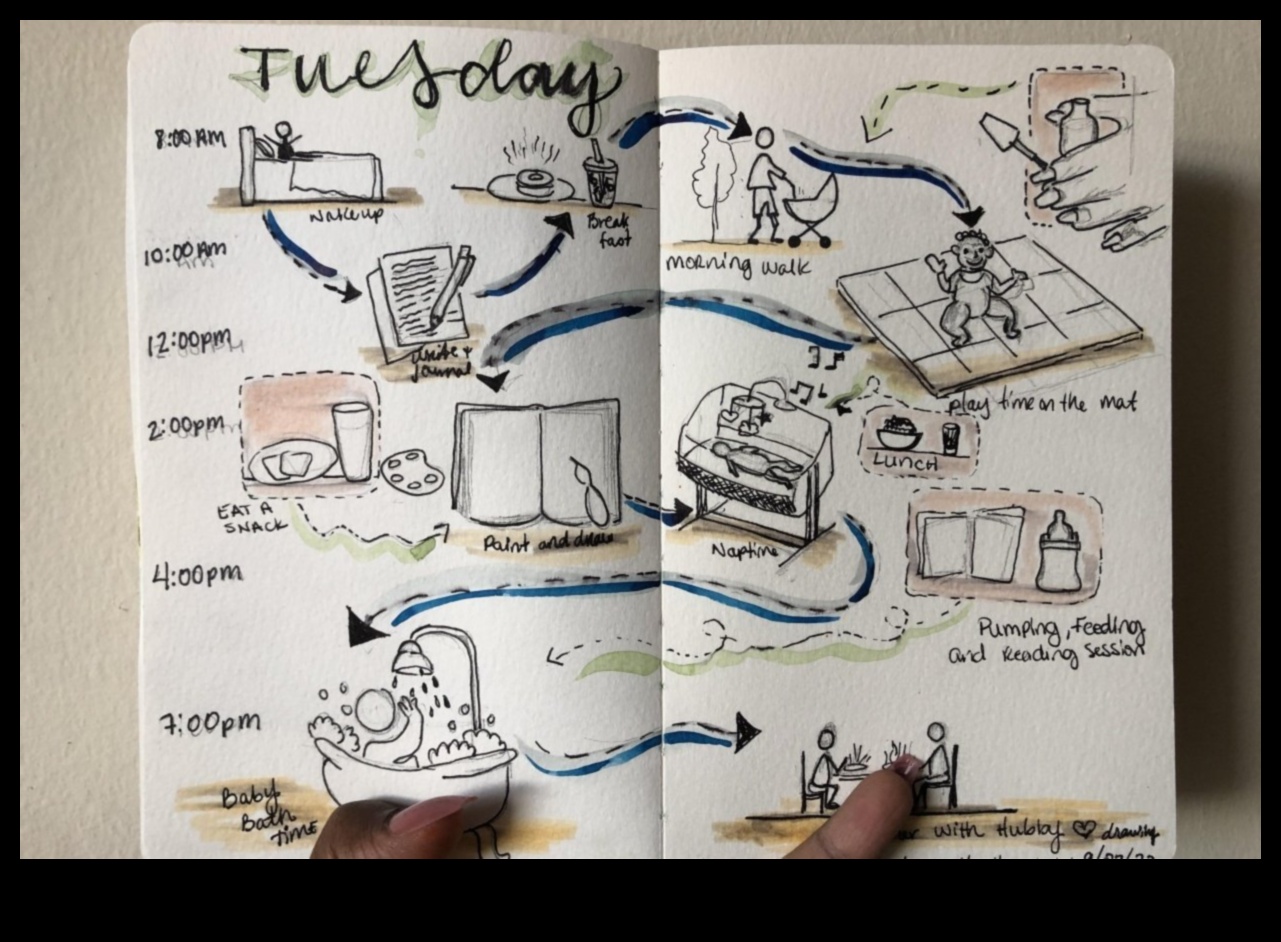 Tuesday
8:00 AM
Wake up
Break
fast
10:00 AM
Write +
Journal
morning walk
12:00pm
play time on the mat
2:00pm
EAT A
SNACK
Paint and draw
Naptime
LUNCH
4:00pm
Pumping, Feeding
and Reading Session
7:00pm
Baby
Bath
time
with Hubby ♡ drawing